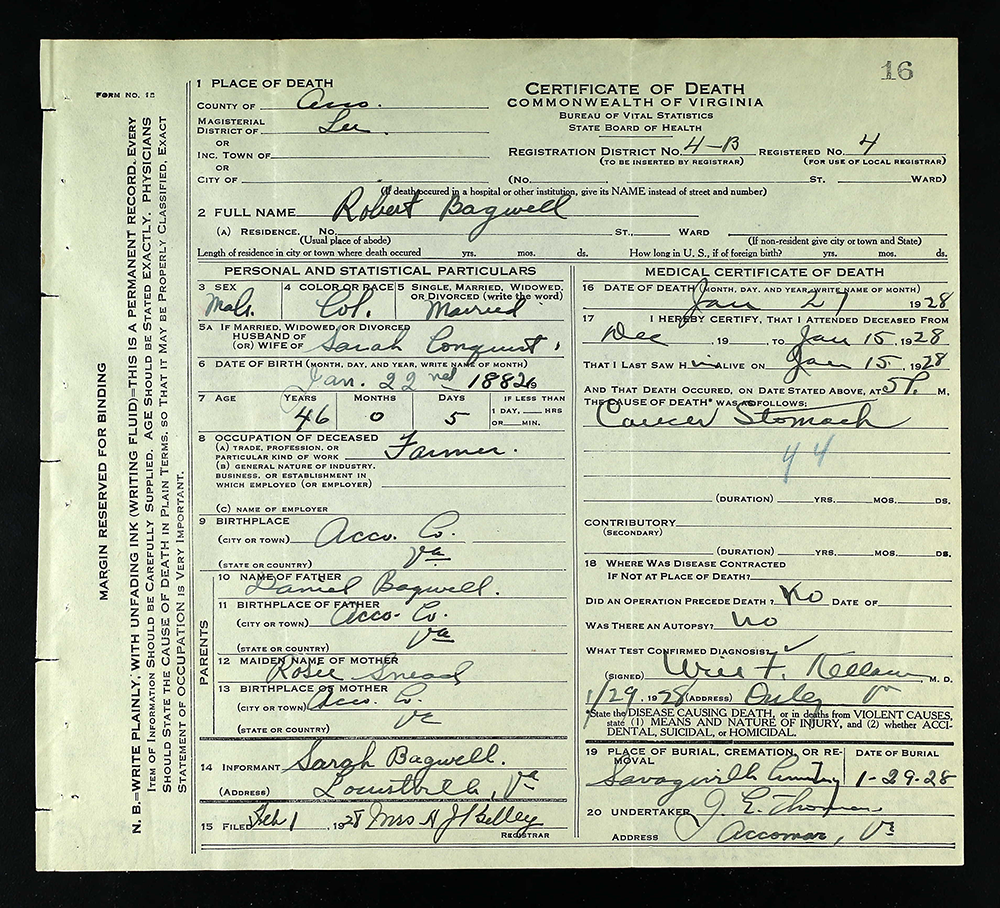 16
FORM NO. 1B
MARGIN RESERVED FOR BINDING
N. B.—WRITE PLAINLY, WITH UNFADING INK (WRITING FLUID)—THIS IS A PERMANENT RECORD. EVERY
ITEM OF INFORMATION SHOULD BE CAREFULLY SUPPLIED. AGE SHOULD BE STATED EXACTLY. PHYSICIANS
SHOULD STATE THE CAUSE OF DEATH IN PLAIN TERMS, SO THAT IT MAY BE PROPERLY CLASSIFIED. EXACT
STATEMENT OF OCCUPATION IS VERY IMPORTANT.
1 PLACE OF DEATH
COUNTY OF Acco.
MAGISTERIAL
DISTRICT OF Lee
OR
INC. TOWN OF
OR
CITY OF
CERTIFICATE OF DEATH
COMMONWEALTH OF VIRGINIA
BUREAU OF VITAL STATISTICS
STATE BOARD OF HEALTH
REGISTRATION DISTRICT NO. 4-B REGISTERED NO. 4
(TO BE INSERTED BY REGISTRAR) (FOR USE OF LOCAL REGISTRAR)
(NO. ST. WARD)
(If death occured in a hospital or other institution, give its NAME instead of street and number)
2 FULL NAME Robert Bagwell
(A) RESIDENCE. NO. ST., WARD
(Usual place of abode) (If non-resident give city or town and State)
Length of residence in city or town where death occured yrs. mos. ds. How long in U. S., if of foreign birth? yrs. mos. ds.
PERSONAL AND STATISTICAL PARTICULARS
3 SEX 4 COLOR OR RACE 5 SINGLE, MARRIED, WIDOWED,
OR DIVORCED (write the word)
Male. Col. Married
5A IF MARRIED, WIDOWED, OR DIVORCED
HUSBAND OF
(OR) WIFE OF Sarah Conquest.
6 DATE OF BIRTH (MONTH, DAY, AND YEAR, WRITE NAME OF MONTH)
Jan. 22nd 1882
7 AGE YEARS MONTHS DAYS IF LESS THAN
1 DAY, HRS
46 0 5 OR MIN.
8 OCCUPATION OF DECEASED
(A) TRADE, PROFESSION, OR
PARTICULAR KIND OF WORK Farmer.
(B) GENERAL NATURE OF INDUSTRY,
BUSINESS, OR ESTABLISHMENT IN
WHICH EMPLOYED (OR EMPLOYER)
(C) NAME OF EMPLOYER
9 BIRTHPLACE
(CITY OR TOWN) Acco. Co.
(STATE OR COUNTRY) Va
PARENTS
10 NAME OF FATHER
Daniel Bagwell.
11 BIRTHPLACE OF FATHER
(CITY OR TOWN) Acco. Co.
(STATE OR COUNTRY) Va
12 MAIDEN NAME OF MOTHER
Rosie Snead
13 BIRTHPLACE OF MOTHER
(CITY OR TOWN) Acco. Co.
(STATE OR COUNTRY) Va
14 INFORMANT Sarah Bagwell.
(ADDRESS) Locustville, Va
15 FILED Feb 1, 1928 Mrs A J Kelley
REGISTRAR
MEDICAL CERTIFICATE OF DEATH
16 DATE OF DEATH (MONTH, DAY, AND YEAR, WRITE NAME OF MONTH)
Jan 27 1928
17 I HEREBY CERTIFY, THAT I ATTENDED DECEASED FROM
Dec, 19, TO Jan 15, 1928
THAT I LAST SAW Him ALIVE ON Jan 15, 1928
AND THAT DEATH OCCURED, ON DATE STATED ABOVE, AT 5 P. M.
THE CAUSE OF DEATH* WAS AS FOLLOWS:
Cancer Stomach
44
(DURATION) YRS. MOS. DS.
CONTRIBUTORY
(SECONDARY)
(DURATION) YRS. MOS. DS.
18 WHERE WAS DISEASE CONTRACTED
IF NOT AT PLACE OF DEATH?
DID AN OPERATION PRECEDE DEATH? No DATE OF
WAS THERE AN AUTOPSY? No
WHAT TEST CONFIRMED DIAGNOSIS?
(SIGNED) Kellam M. D.
1/29, 1928 (ADDRESS) Onley Va
*State the DISEASE CAUSING DEATH, or in deaths from VIOLENT CAUSES,
state (1) MEANS AND NATURE OF INJURY, and (2) whether ACCI-
DENTAL, SUICIDAL, or HOMICIDAL.
19 PLACE OF BURIAL, CREMATION, OR RE- DATE OF BURIAL
MOVAL
Savageville Cemetery 1-29-28
20 UNDERTAKER J. E. Thomas
ADDRESS Accomac, Va